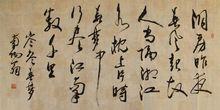 洞房昨夜
春風起故
人尚隔湘江
水枕上片時
春夢中
行盡江南
數千里
岑參春夢